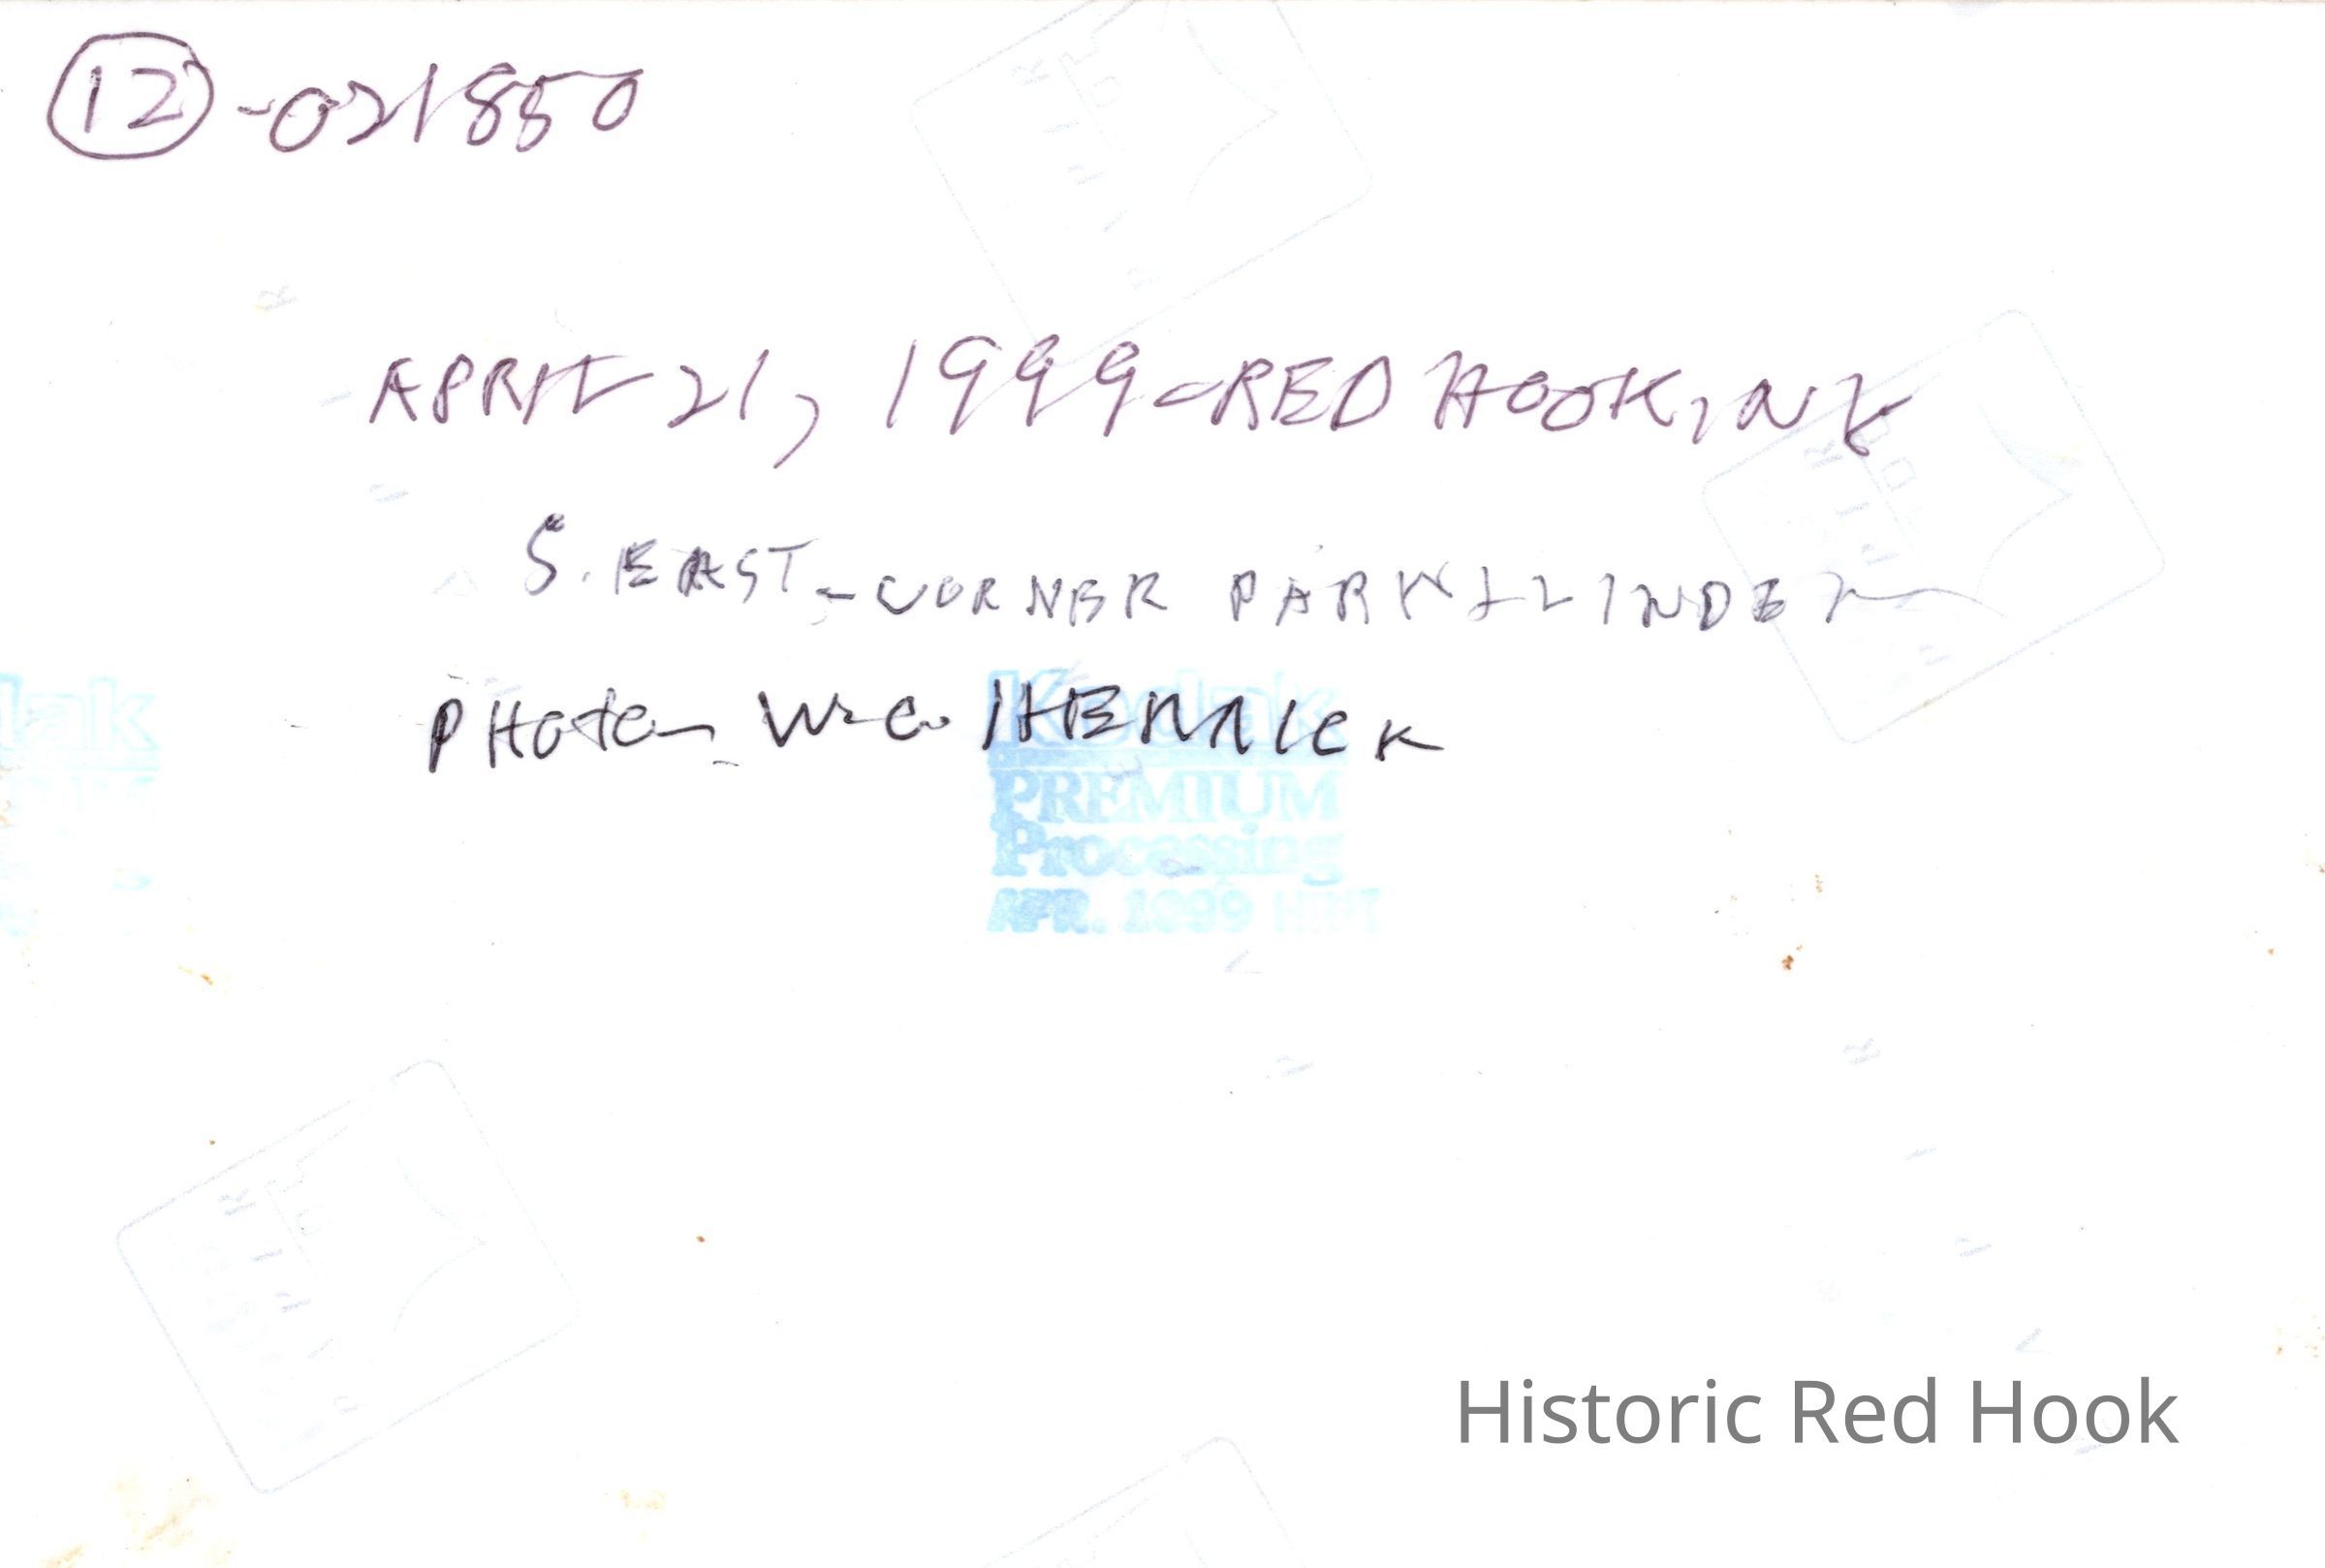 12 -021850
APRIL 21, 1999-RED HOOK, NY
S. EAST-CORNER PARK & LINDEN
PHOTO- W.C. HERRICK
Kodak
PREMIUM
Processing
APR. 1999
Historic Red Hook